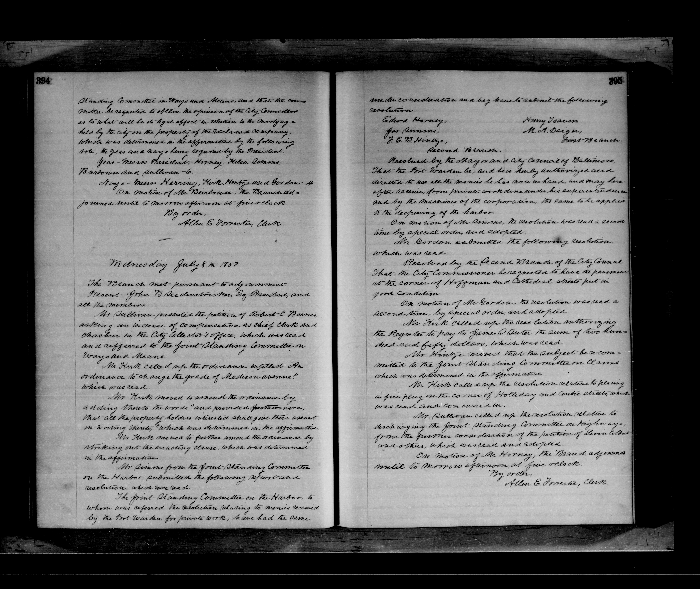 394
Standing Committee on Ways and Means, and that the com-
mittee be requested to obtain the opinion of the City Counsellor
as to what will be the legal effect in relation to the
by the city on the property of the company,
which was determined in the affirmative by the following
vote, the yeas and nays being required by the President.
Yeas - Messrs President, Horney,
and Sullivan - 6.
Nays - Messrs Harvey, Kirk, Hintze and Gordon - 4
On motion of Mr. the Branch ad-
journed until to morrow afternoon at five o'clock
By order,
Allen E Forrester, Clerk
Wednesday July 8th 1857
The Branch met pursuant to adjournment
Present John T. Esq. President, and
all the members.
Mr. Sullivan presented the petition of Robert C.
asking an increase of compensation as Chief Clerk and
in the City Collector's Office, which was read
and referred to the Joint Standing Committee on
Ways and Means.
Mr. Kirk called up the ordinance entitled "An
ordinance to change the grade of Madison avenue"
which was read.
Mr. Kirk moved to amend the ordinance by
adding thereto the words "and provided further
that all the property holders interested shall give their assent
in writing thereto," which was determined in the affirmative.
Mr. Kirk moved to further amend the ordinance by
striking out the enacting clause, which was determined
in the affirmative.
Mr. Simms from the Joint Standing Committee
on the Harbor, submitted the following report and
resolution, which were read.
The Joint Standing Committee on the Harbor to
whom was referred the resolution relating to monies received
by the Port Warden for private work, have had the same
395
under consideration and beg leave to submit the following
resolution
Edwd Horney, Henry
Jos Simms, M. A. Daiger,
F. E. B. Hintze, First Branch.
Second Branch.
Resolved by the Mayor and City Council of Baltimore,
That the Port Warden be, and he is hereby authorized and
directed to use all the monies he has now in hand, and may here-
after obtain from private work done under his superintendence
and by the machines of the corporation, the same to be applied
to the deepening of the harbor
On motion of Mr. Simms, the resolution was read a second
time by special order and adopted.
Mr. Gordon submitted the following resolution
which was read.
Resolved by the Second Branch of the City Council
That the City Commissioner be requested to have the pavement
at the corner of Hoffman and Cathedral streets put in
good condition
On motion of Mr. Gordon the resolution was read a
second time by special order and adopted.
Mr. Kirk called up the resolution authorizing
the Register to pay to James the sum of two hun-
dred and fifty dollars, which was read.
Mr. Hintze moved that the subject be recom-
mitted to the Joint Standing Committee on Claims
which was determined in the affirmative
Mr. Kirk called up the resolution relative to placing
a fire plug on the corner of Holliday and streets which
was read and concurred in.
Mr. Sullivan called up the resolution relative to
discharging the Joint Standing Committee on Highways
from the further consideration of the petition of
and others, which was read and adopted.
On motion of Mr. Horney, the Branch adjourned
until to morrow afternoon at five o'clock.
By order
Allen E Forrester, Clerk